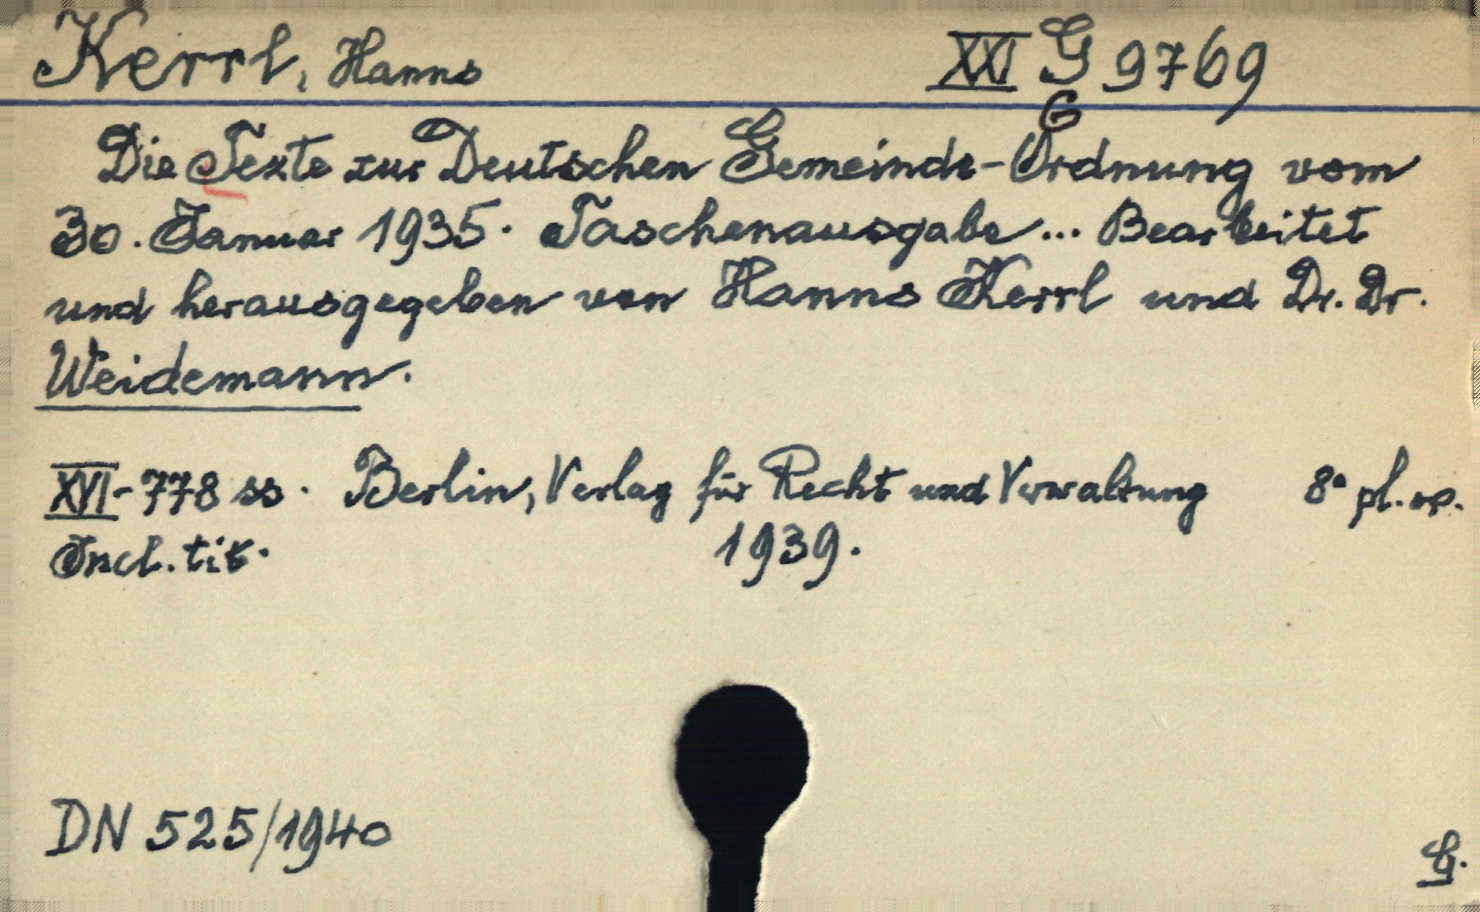 Kerrl, Hanns XXI G 9769
G
Die Texte zur Deutschen Gemeinde-Ordnung vom
30. Januar 1935. Taschenausgabe... Bearbeitet
und herausgegeben von Hanns Kerrl und Dr. Dr.
Weidemann.
XVI-778 ss. Berlin, Verlag für Recht und Verwaltung 8° pl. op.
Incl. tit. 1939.
DN 525/1940